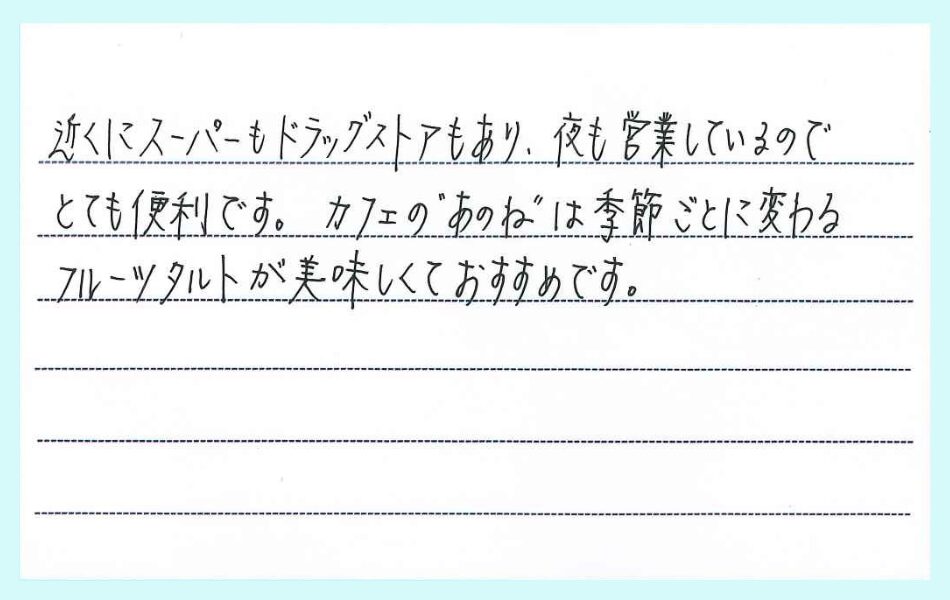 近くにスーパーもドラッグストアもあり、夜も営業しているので
とても便利です。 カフェの"あのね"は季節ごとに変わる
フルーツタルトが美味しくておすすめです。